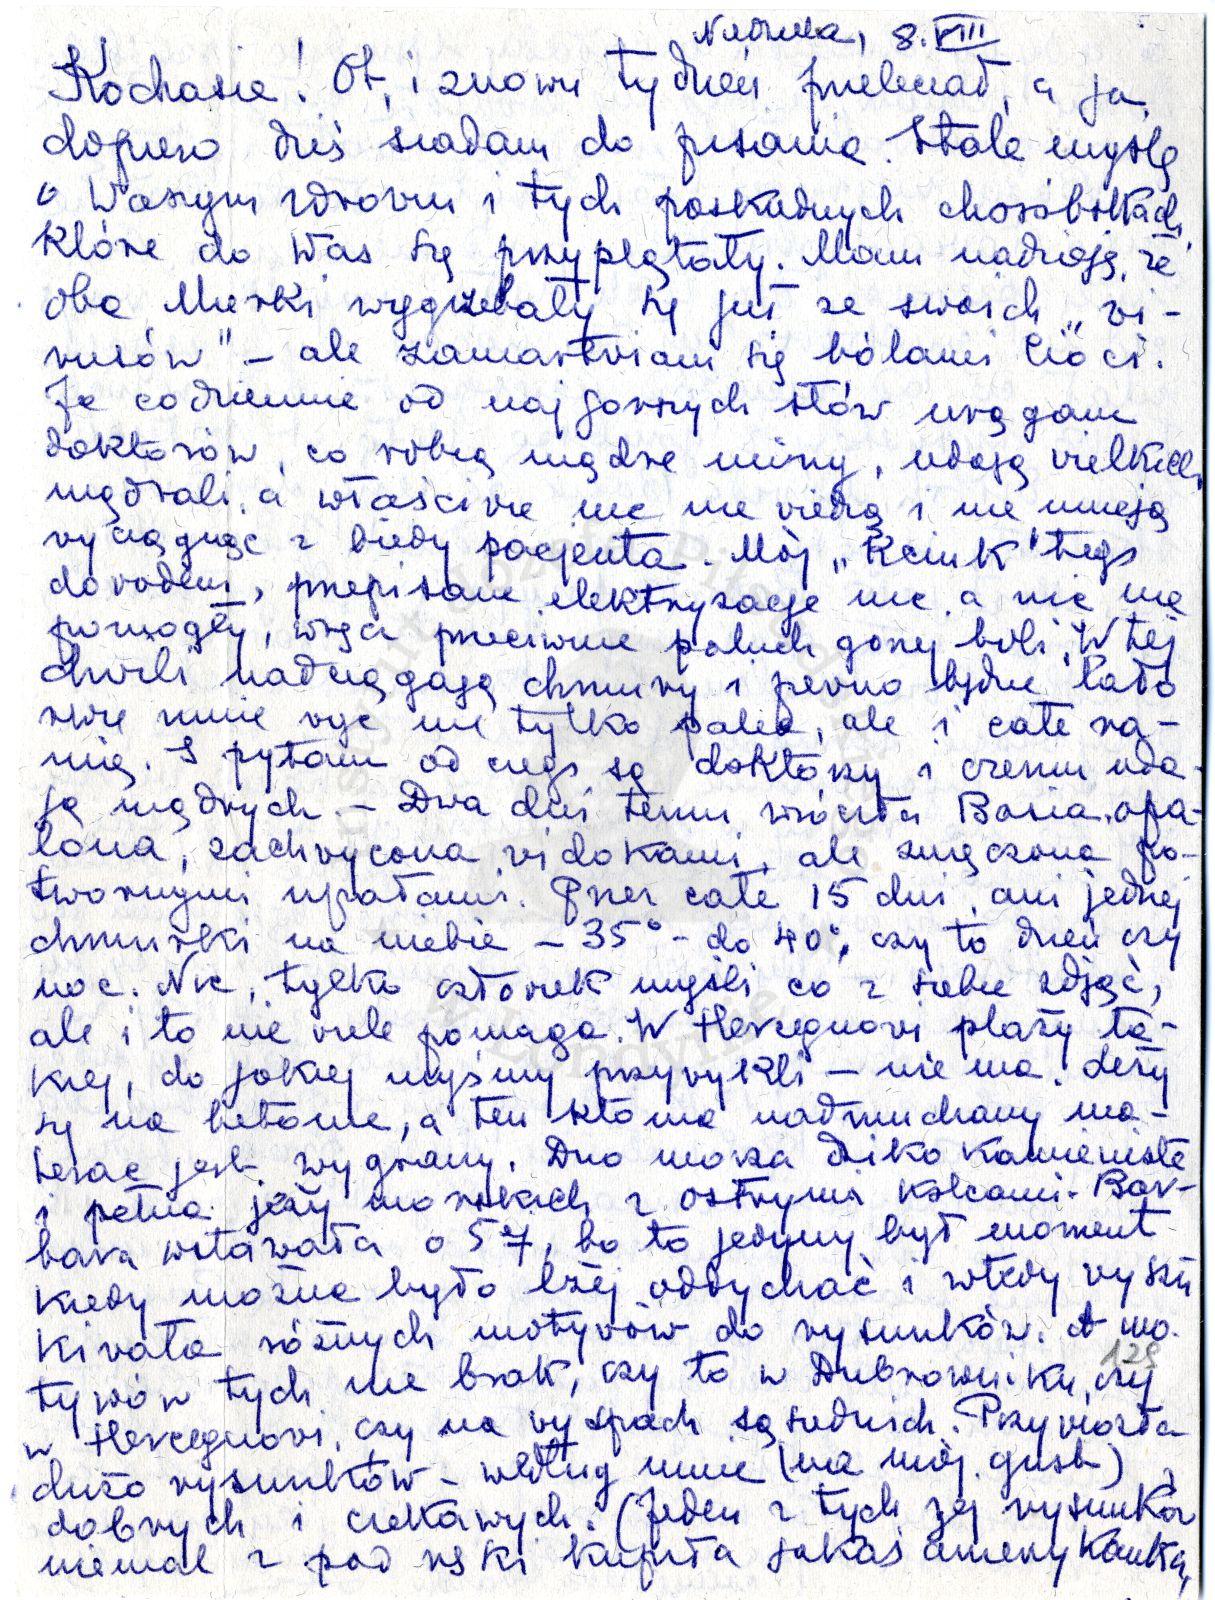 Niedziela, 8.VIII
Kochasie! Ot, i znowu tydzień przeleciał, a ja
dopiero dziś siadam do pisania. Stale myślę
o Waszym zdrowiu i tych paskudnych choróbskach,
które do Was się przyplątały. Mam nadzieję, że
obie Mirki wygrzebały się już ze swoich „wi-
rusów" – ale zamartwiam się bólami Cioci.
Ja codziennie od najgorszych słów urągam
doktorów, co robią mądre miny, udają wielkich
mądrali, a właściwie nic nie wiedzą i nie umieją
wyciągnąć z biedy pacjenta. Mój „Kciuk" tego
dowodem, przepisane elektryzacje nic a nic nie
pomogły, wręcz przeciwnie paluch gorzej boli. W tej
chwili nadciągają chmury i pewno będzie lało
rwie mnie więc nie tylko palec, ale i całe ra-
mię. I pytam od czego są doktorzy i czemu uda-
ją mądrych – Dwa dni temu wróciła Basia, opa-
lona, zachwycona widokami, ale zmęczona po-
twornymi upałami. Przez całe 15 dni, ani jednej
chmurki na niebie – 35° – do 40°, czy to dzień czy
noc. Nic, tylko człowiek myśli co z siebie zdjąć,
ale i to nie wiele pomaga. W Hercegnovi plaży ta-
kiej, do jakiej myśmy przywykli – nie ma. Leży
się na betonie, a ten kto ma nadmuchany ma-
terac jest wygrany. Dno morza dziko kamieniste
i pełne jeży morskich z ostrymi kolcami. Bar-
bara wstawała o 5ej, bo to jedyny był moment
kiedy można było lżej oddychać i wtedy wyszu
kiwała różnych motywów do rysunków. A mo-
129
tywów tych nie brak, czy to w Dubrowniku, czy
w Hercegnovi, czy na wyspach sąsiednich. Przywiozła
dużo rysunków – według mnie (na mój gust)
dobrych i ciekawych. (Jeden z tych jej rysunków
niemal z pod ręki kupiła jakaś amerykanka,
Instytut Józefa Piłsudskiego
w Londynie